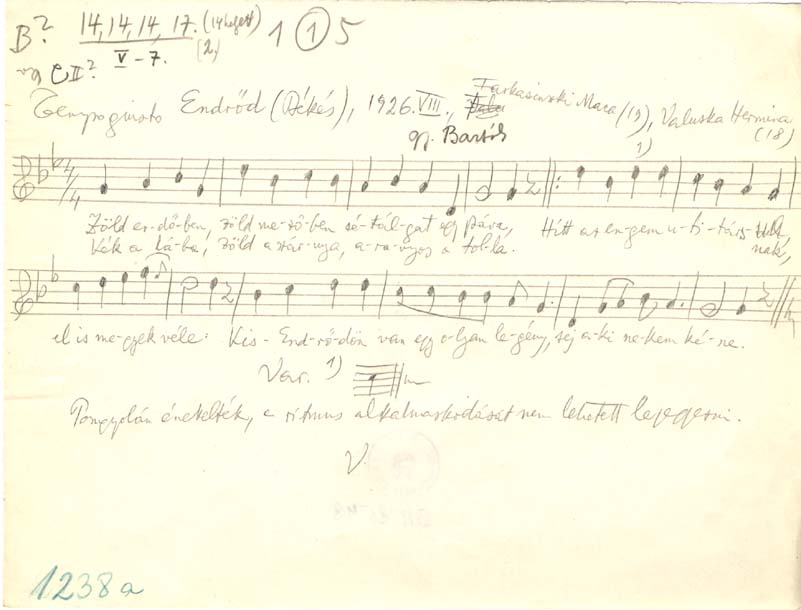 B? 14, 14, 14, 17. (14 helyett) 1 ① 5
V – 7. (2.)
vagy C II?
Endrőd (Békés), 1926. VIII., Farkasinszki Mara (19), Valuska Hermina (18)
gy. Bartók
1)
4/4
Zöld er-dő-ben, zöld me-ző-ben sé-tál-gat egy páva, Hítt az en-gem u-ti-társ-
Kék a lá-ba, zöld a szár-nya, a-ra-nyos a tol-la. nak,
el is me-gyek véle: Kis-End-rő-dön van egy o-lyan le-gény, sej a-ki ne-kem ké-ne.
Var. 1)
Pongyolán énekelték, a ritmus alkalmazkodását nem lehetett lejegyezni.
V.
1238a